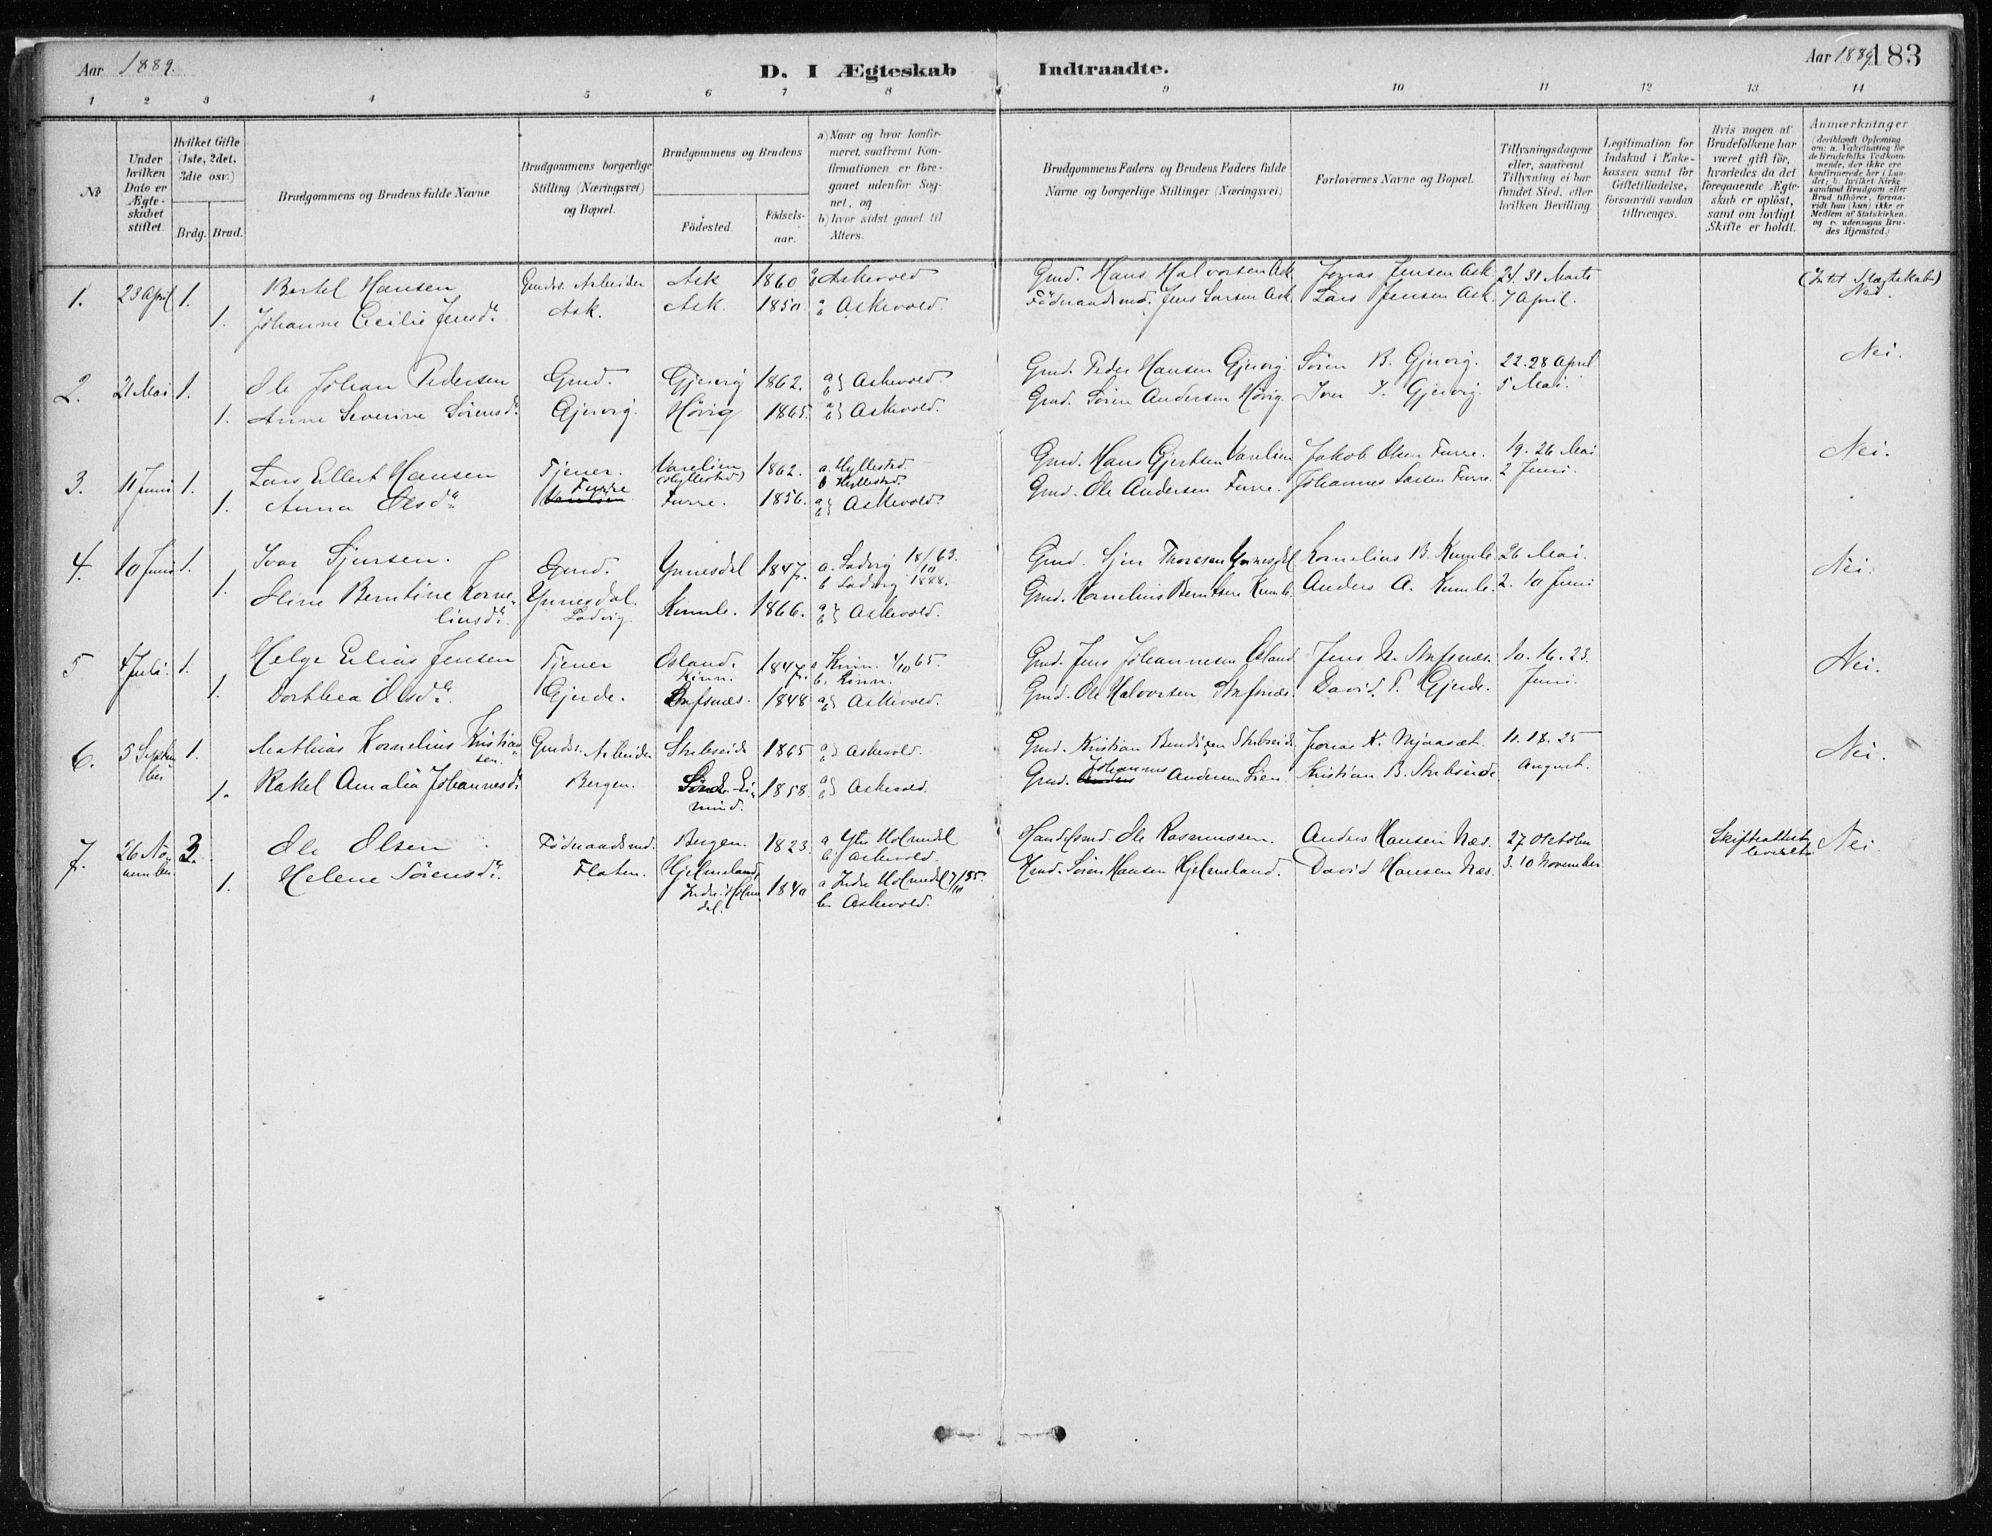 Aar 1889.
D. I Ægteskab Indtraadte.
Aar 1889. 183
1 2 3 4 5 6 7 8 9 10 11 12 13 14
No
Under hvilken Dato er Ægteskabet stiftet.
Hvilket Gifte (1ste, 2det, 3die osv.)
Brdg. Brud.
Brudgommens og Brudens fulde Navne
Brudgommens borgerlige Stilling (Næringsvei) og Bopæl.
Brudgommens og Brudens
Födested.
Födsels-aar.
a) Naar og hvor konfirmeret, saafremt Konfirmationen er foregaaet udenfor Sognet, og
b) hvor sidst gaaet til Alters.
Brudgommens Faders og Brudens Faders fulde Navne og borgerlige Stillinger (Næringsvei)
Forlovernes Navne og Bopæl.
Tillysningsdagene eller, saafremt Tillysning ei har fundet Sted, efter hvilken Bevilling.
Legitimation for Indskud i Enkekassen samt for Giftetilladelse, forsaavidt saadan tiltrænges.
Hvis nogen af Brudefolkene har været gift før, hvorledes da det foregaaende Ægteskab er oplöst, samt om lovligt Skifte er holdt.
Anmærkninger
1. 23 April 1. Bertel Hansen Gmdss. Arbeider Ask 1860 Askevold Gmd. Hans Halvorsen Ask Jonas Jensen Ask 24. 31 Marts (Intet Slægtskab)
1. Johanne Cecilie Jensdr. Ask. Ask. 1850 Askevold. Föderaadsmd. Jens Larsen Ask. Lars Jensen Ask. 7 April. Nei.
2. 21 Mai 1. Ole Johan Pedersen Gmd. Gjervig 1862. a b Askevold. Gmd. Peder Hansen Gjervig. Sören B. Gjervig. 22. 28 April Nei.
1. Anne Severine Sörensdr. Gjervig. Hövig 1865. a b Askevold. Gmd. Sören Andersen Hövig. Iver I. Gjervig. 5 Mai.
3. 11 Juni 1. Lars Ellert Hansen Tjener. Varelien (Hyllestad) 1862. a. Hyllestad. b Hyllestad. Gmd. Hans Gjertsen Varelien Jakob Olsen Furre. 19. 26 Mai Nei.
1. Anna Olsdr. Furre Furre. 1856. a b Askevold. Gmd. Ole Andersen Furre. Johannes Larsen Furre. 2 Juni.
4. 10 Juni 1. Ivar Sjursen. Gmd. Ynnesdal 1847. a. Ladvig 18/10 63. b Ladvig 1888. Gmd. Sjur Thoresen Ynnesdal Kornelius B. Kumle. 26 Mai. Nei.
1. Oline Berntine Korneliusdr. Ynnesdal. Ladvig. Kumle. 1866. a b Askevold. Gmd. Kornelius Berntsen Kumle. Anders A. Kumle. 2. 10 Juni
5 4 Juli. 1. Helge Elias Jensen Tjener Osland. Kinn. 1847. a Kinn. 1/10 65. b. Kinn. Gmd. Jens Johannesen Osland Jens N. Strefsnæs. 10. 16. 23. Nei.
1. Dorthea Olsdr. Gjerde. 1848 a b Askevold. Gmd. Ole Halvorsen Strefsnæs. David T. Gjerde. Juni.
6. 5 September 1. Mathias Kornelius Kristiansen. Gmdss. Arbeider Stubseide 1865 a b Askevold. Gmd. Kristian Bendixen Stubseide Jonas K. Mjaasæt. 11. 18. 25 Nei.
1. Rakel Amalia Johannesdr. Bergen. 1858. a b Askevold. Gmd. Johannes Andersen Lien. Kristian B. Stubseide August.
7. 26 November 3. Ole Olsen Föderaadsmd. Bergen. 1823. a Ytre Holmedal b Askevold. Handelsmd. Ole Rasmussen. Anders Hansen Næs. 27 Oktober Skifteattest leveret Nei.
1. Helene Sörensdr. Flaten. Hjelmeland, Indre Holmedal. 1840 a Indre Holmedal 7/10 55. b. Askevold. Hmd. Sören Hansen Hjelmeland. David Hansen Næs. 3. 10 November